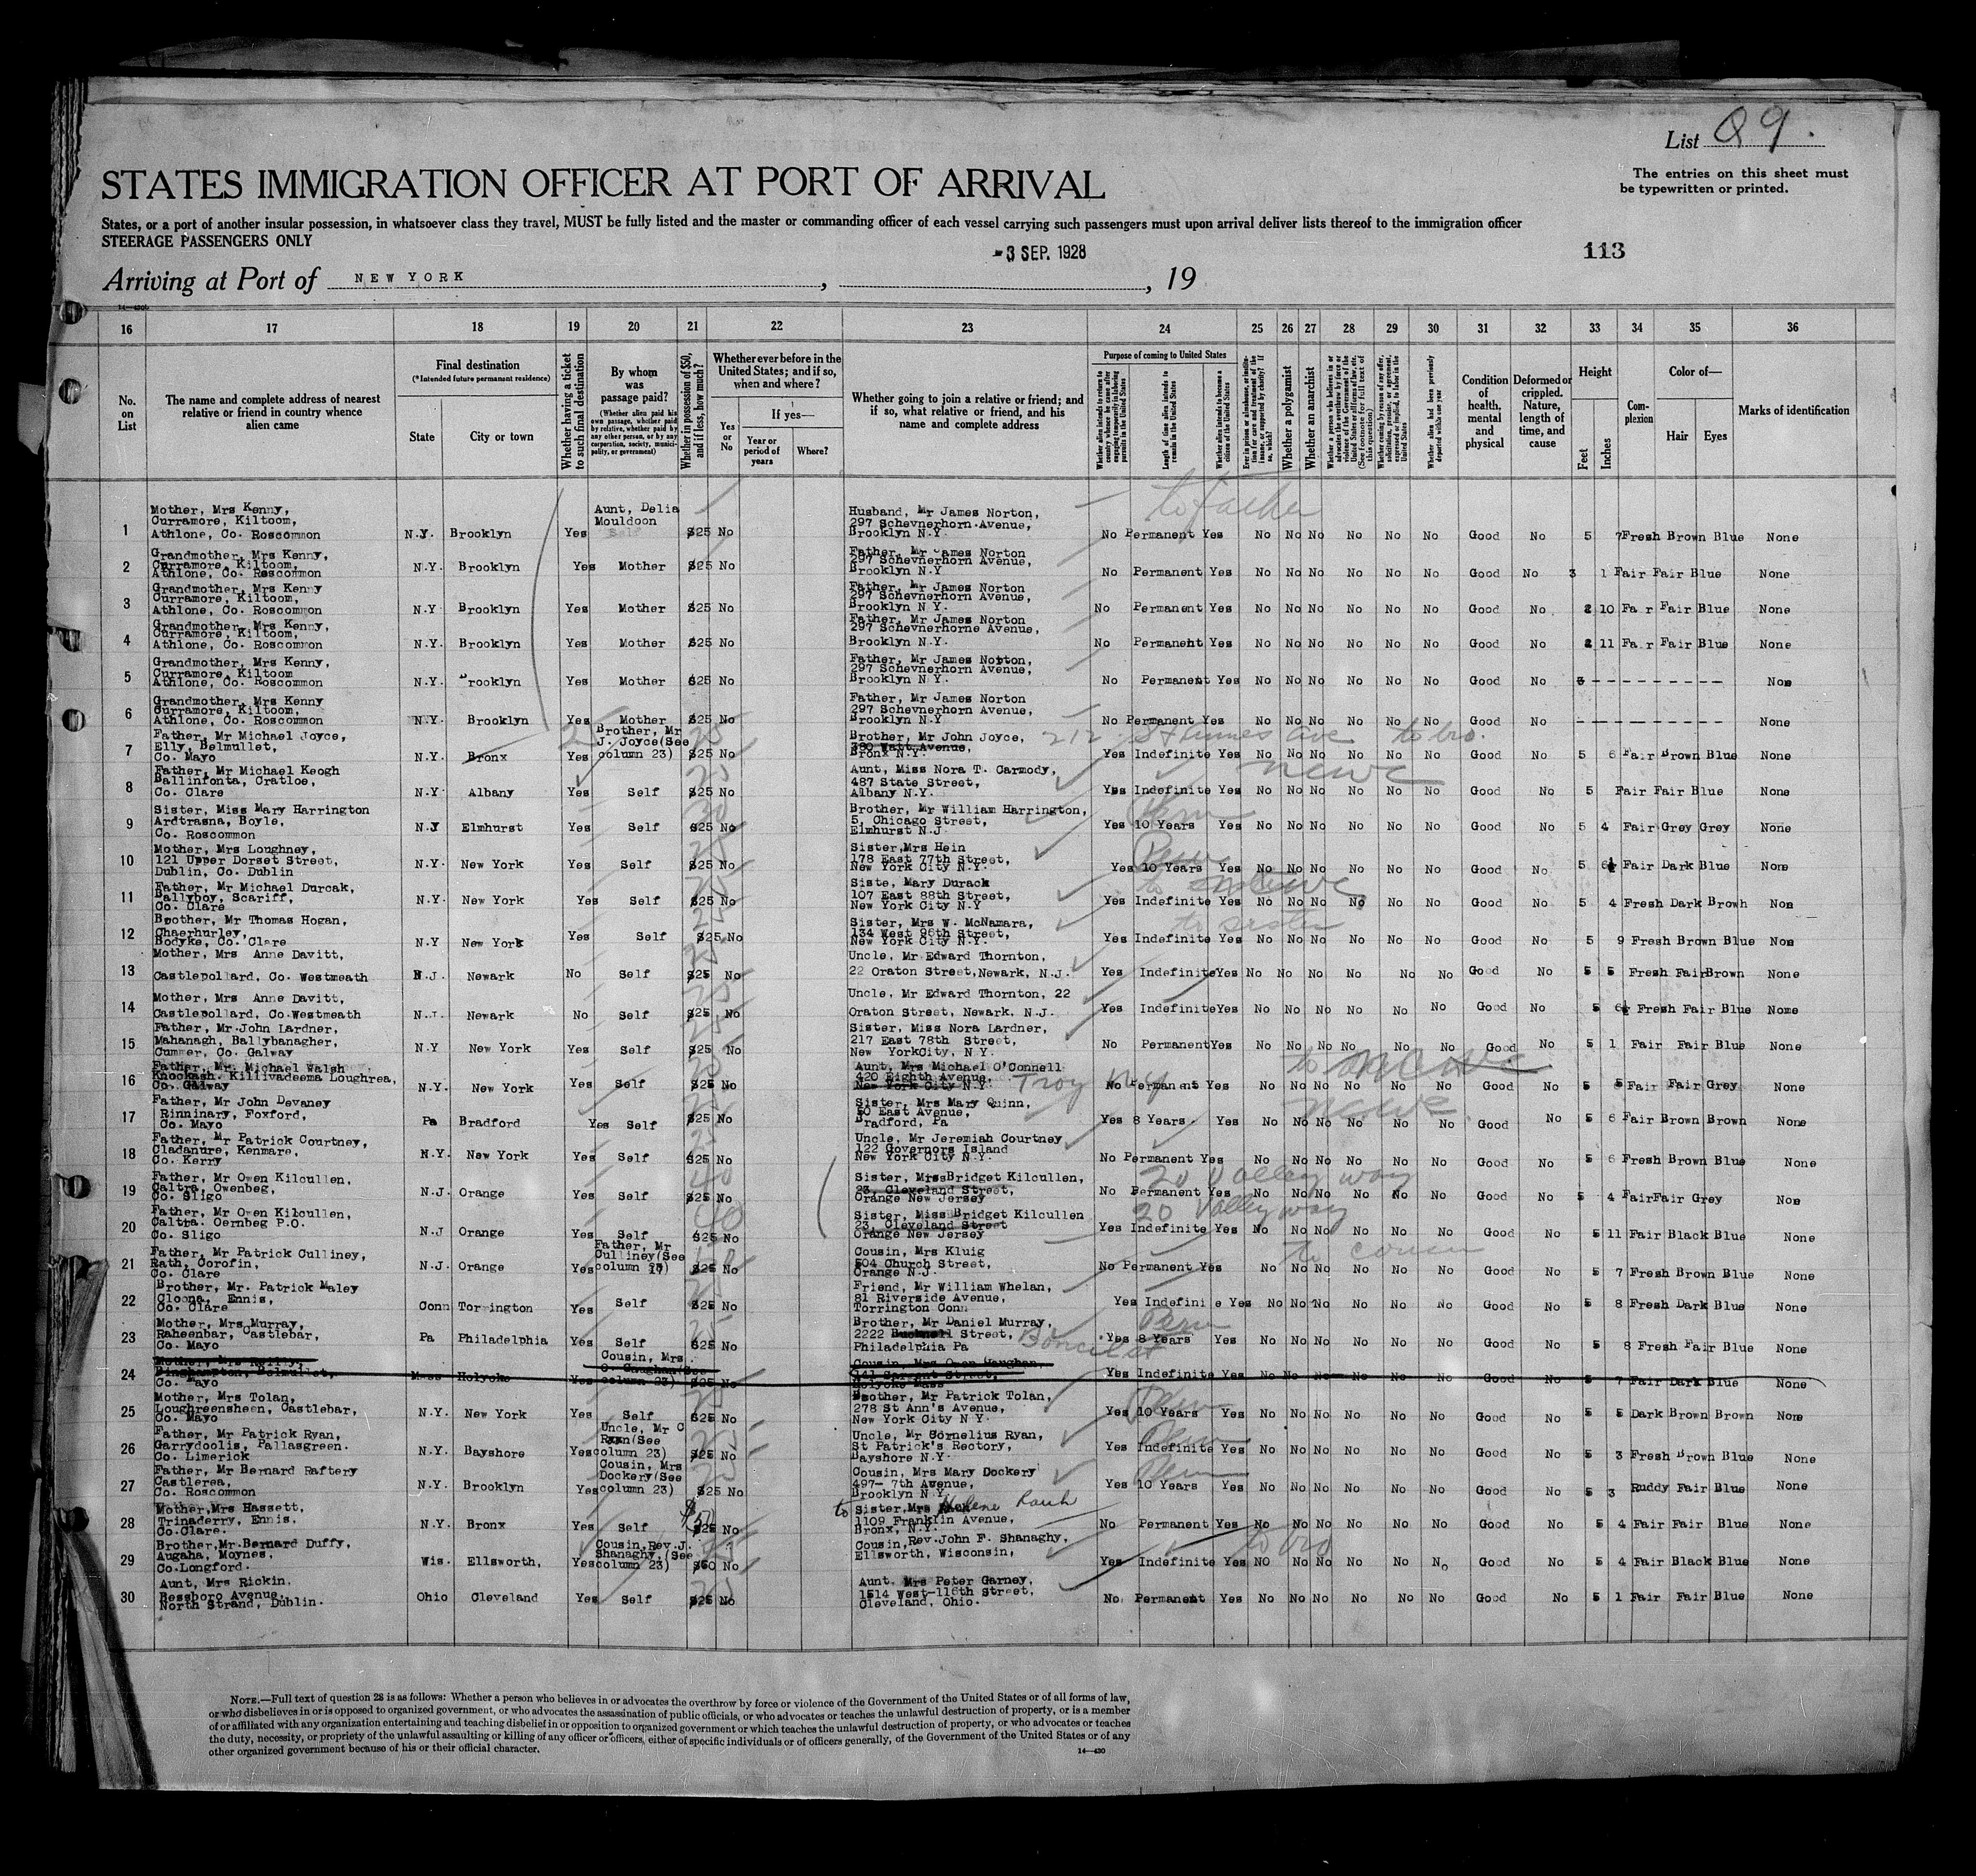 List 89.
The entries on this sheet must
be typewritten or printed.
STATES IMMIGRATION OFFICER AT PORT OF ARRIVAL
States, or a port of another insular possession, in whatsoever class they travel, MUST be fully listed and the master or commanding officer of each vessel carrying such passengers must upon arrival deliver lists thereof to the immigration officer
STEERAGE PASSENGERS ONLY
-3 SEP. 1928
113
Arriving at Port of NEW YORK, , 19
16 17 18 19 20 21 22 23 24 25 26 27 28 29 30 31 32 33 34 35 36
No. on List
The name and complete address of nearest relative or friend in country whence alien came
Final destination
(*Intended future permanent residence)
State
City or town
Whether having a ticket to such final destination
By whom was passage paid?
(Whether alien paid his own passage, whether paid by relative, whether paid by any other person, or by any corporation, society, municipality, or government)
Whether in possession of $50, and if less, how much?
Whether ever before in the United States; and if so, when and where?
Yes or No
If yes—
Year or period of years
Where?
Whether going to join a relative or friend; and if so, what relative or friend, and his name and complete address
Purpose of coming to United States
Length of time alien intends to remain in the United States
Whether alien intends to become a citizen of the United States
Whether a polygamist
Whether an anarchist
Condition of health, mental and physical
Deformed or crippled. Nature, length of time, and cause
Height
Feet
Inches
Complexion
Color of—
Hair
Eyes
Marks of identification
to father
1 Mother, Mrs Kenny, Curramore, Kiltoom, Athlone, Co. Roscommon N.Y. Brooklyn Yes Aunt, Delia Mouldoon $25 No Husband, Mr James Norton, 297 Schevnerhorn Avenue, Brooklyn N.Y. No Permanent Yes No No No No No No Good No 5 7 Fresh Brown Blue None
2 Grandmother, Mrs Kenny, Curramore, Kiltoom, Athlone, Co. Roscommon N.Y. Brooklyn Yes Mother $25 No Father, Mr James Norton 297 Schevnerhorn Avenue, Brooklyn N.Y No Permanent Yes No No No No No No Good No 3 1 Fair Fair Blue None
3 Grandmother, Mrs Kenny Curramore, Kiltoom, Athlone, Co. Roscommon N.Y Brooklyn Yes Mother $25 No Father, Mr James Norton 297 Schevnerhorn Avenue, Brooklyn N Y. No Permanent Yes No No No No No No Good No 2 10 Fa r Fair Blue None
4 Grandmother, Mrs Kenny, Curramore, Kiltoom, Athlone, Co. Roscommon N.Y. Brooklyn Yes Mother $25 No Father, Mr James Norton 297 Schevnerhorne Avenue, Brooklyn N.Y. No Permanent Yes No No No No No No Good No 2 11 Fa r Fair Blue None
5 Grandmother, Mrs Kenny, Curramore, Kiltoom Athlone, Co. Roscommon N.Y. Brooklyn Yes Mother $25 No Father, Mr James Norton, 297 Schevnerhorn Avenue, Brooklyn N.Y. No Permanent Yes No No No No No No Good No 3 - - - - - - - - None
6 Grandmother, Mrs Kenny Curramore, Kiltoom, Athlone, Co. Roscommon N.Y. Brooklyn Yes Mother $25 No Father, Mr James Norton 297 Schevnerhorn Avenue, Brooklyn N.Y No Permanent Yes No No No No No No Good No - - - - - - - - None
7 Father, Mr Michael Joyce, Elly, Belmullet, Co. Mayo N.Y. Bronx Yes Brother, Mr J. Joyce(See column 23) $25 No Brother, Mr John Joyce, 380 Watt Avenue, Bronx N.Y. 212 St Anns Ave to bro. Yes Indefinite Yes No No No No No No Good No 5 6 Fair Brown Blue None
8 Father, Mr Michael Keogh Ballinfonta, Cratloe, Co. Clare N.Y. Albany Yes Self $25 No Aunt, Miss Nora T. Carmody, 487 State Street, Albany N.Y. Yes Indefinite Yes No No No No No No Good No 5 Fair Fair Blue None
9 Sister, Miss Mary Harrington Ardtrasna, Boyle, Co. Roscommon N.J Elmhurst Yes Self $25 No Brother, Mr William Harrington, 5, Chicago Street, Elmhurst N.J Yes 10 Years Yes No No No No No No Good No 5 4 Fair Grey Grey None
10 Mother, Mrs Loughney, 121 Upper Dorset Street, Dublin, Co. Dublin N.Y. New York Yes Self $25 No Sister,Mrs Hein 178 East 77th Street, New York City N.Y. Yes 10 Years Yes No No No No No No Good No 5 6½ Fair Dark Blue None
11 Father, Mr Michael Durcak, Ballyboy, Scariff, Co. Clare N.Y. New York Yes Self $25 No Siste, Mary Durack 107 East 88th Street, New York City N.Y Yes Indefinite Yes No No No No No No Good No 5 4 Fresh Dark Brown None
12 Brother, Mr Thomas Hogan, Chaerhurley, Bodyke, Co. Clare N.Y New York Yes Self $25 No Sister, Mrs W. McNamara, 134 West 96th Street, New York City N.Y. to sister Yes Indefinite Yes No No No No No No Good No 5 9 Fresh Brown Blue None
13 Mother, Mrs Anne Davitt, Castlepollard, Co. Westmeath N.J. Newark No Self $25 No Uncle, Mr Edward Thornton, 22 Oraton Street,Newark, N.J. Yes Indefinite Yes No No No No No No Good No 5 5 Fresh Fair Brown None
14 Mother, Mrs Anne Davitt, Castlepollard, Co.Westmeath N.J. Newark No Self $25 No Uncle, Mr Edward Thornton, 22 Oraton Street, Newark, N.J. Yes Indefinite Yes No No No No No No Good No 5 6½ Fresh Fair Blue None
15 Father, Mr.John Lardner, Mahanagh, Ballybanagher, Cummer, Co. Galway N.Y New York Yes Self $25 No Sister, Miss Nora Lardner, 217 East 78th Street, New YorkCity, N.Y. No Permanent Yes No No No No No No Good No 5 1 Fair Fair Blue None
16 Father, Mr. Michael Walsh Knockash, Killivadeema Loughrea, Co. Galway N.Y. New York Yes Self $25 No Aunt, Mrs Michael O'Connell 420 Eighth Avenue, New York City N.Y. Troy N.Y No Permanent Yes No No No No No No Good No 5 5 Fair Fair Grey None
17 Father, Mr John Devaney Rinninary, Foxford, Co. Mayo Pa Bradford Yes Self $25 No Sister, Mrs Mary Quinn, 50 East Avenue, Bradford, Pa Yes 8 Years. Yes No No No No No No Good No 5 6 Fair Brown Brown None
18 Father, Mr Patrick Courtney, Cladanure, Kenmare, Co. Kerry N.Y. New York Yes Self $25 No Uncle, Mr Jeremiah Courtney 122 Governors Island New York City N.Y. No Permanent Yes No No No No No No Good No 5 6 Fresh Brown Blue None
19 Father, Mr Owen Kilcullen, Caltra, Owenbeg, Co. Sligo N.J. Orange Yes Self $25 No Sister, Mrs Bridget Kilcullen, 23, Cleveland Street, Orange New Jersey 20 Valley way No Permanent Yes No No No No No No Good No 5 4 Fair Fair Grey None
20 Father, Mr Owen Kilcullen, Caltra. Oernbeg P.O. Co. Sligo N.J Orange Yes Self $25 No Sister, Miss Bridget Kilcullen 23, Cleveland Street Orange New Jersey 20 Valley way Yes Indefinite Yes No No No No No No Good No 5 11 Fair Black Blue None
21 Father, Mr Patrick Culliney, Rath, Corofin, Co. Clare N.J. Orange Yes Father, Mr Culliney(See column 17) $25 No Cousin, Mrs Kluig 504 Church Street, Orange N.J. to cousin No Permanent Yes No No No No No No Good No 5 7 Fresh Brown Blue None
22 Brother, Mr. Patrick Maley Cloona, Ennis, Co. Clare Conn Torrington Yes Self $25 No Friend, Mr William Whelan, 81 Riverside Avenue, Torrington Conn Yes Indefini e Yes No No No No No No Good No 5 8 Fresh Dark Blue None
23 Mother, Mrs Murray, Raheenbar, Castlebar, Co. Mayo Pa Philadelphia Yes Self $25 No Brother, Mr Daniel Murray, 2222 Street, Philadelphia Pa Perm Yes 8 Years Yes No No No No No No Good No 5 8 Fresh Fair Blue None
24 Mother, Mrs Reilly, Binghampton, Belmullet, Co. Mayo Mass Holyoke Yes Cousin, Mrs O. Gaughan(See column 23) $25 No Cousin, Mrs Owen Vaughan, 141 Sargent Street, Holyoke Mass Yes Indefinite Yes No No No No No No Good No 5 7 Fair Dark Blue None
25 Mother, Mrs Tolan, Loughreensheen, Castlebar, Co. Mayo N.Y. New York Yes Self $25 No Brother, Mr Patrick Tolan, 278 St Ann's Avenue, New York City N Y. Perm Yes 10 Years Yes No No No No No No Good No 5 5 Dark Brown Brown None
26 Father, Mr Patrick Ryan, Garrydoolis, Pallasgreen. Co. Limerick N.Y. Bayshore Yes Uncle, Mr C Ryan(See column 23) $25 No Uncle, Mr Cornelius Ryan, St Patrick's Rectory, Bayshore N.Y. Perm Yes Indefinite Yes No No No No No No Good No 5 3 Fresh Brown Blue None
27 Father, Mr Bernard Raftery Castlerea, Co. Roscommon N.Y. Brooklyn Yes Cousin, Mrs Dockery(See column 23) $25 No Cousin, Mrs Mary Dockery 497- 7th Avenue, Brooklyn N.Y. Perm Yes 10 Years Yes No No No No No No Good No 5 3 Ruddy Fair Blue None
28 Mother,Mrs Hassett, Trinaderry, Ennis, Co.Clare. N.Y. Bronx Yes Self $50 No to Sister,Mrs Helene Rauh 1109 Franklin Avenue, Bronx, N.Y. No Permanent Yes No No No No No No Good No 5 4 Fair Fair Blue None
29 Brother,Mr.Bernard Duffy, Augaha, Moynes, Co.Longford. Wis. Ellsworth, Yes Cousin,Rev.J. Shanaghy,(See column 23) $50 No Cousin,Rev.John F. Shanaghy, Ellsworth, Wisconsin, to bro Yes Indefinite Yes NO No No No No No Good No 5 4 Fair Black Blue None
30 Aunt, Mrs Rickin, Bessboro Avenue, North Strand, Dublin. Ohio Cleveland Yes Self $25 No Aunt. Mrs Peter Garney, 1514 West-116th Street, Cleveland, Ohio. No Permanent Yes No No No No No No Good No 5 1 Fair Fair Blue None
NOTE.—Full text of question 28 is as follows: Whether a person who believes in or advocates the overthrow by force or violence of the Government of the United States or of all forms of law,
or who disbelieves in or is opposed to organized government, or who advocates the assassination of public officials, or who advocates or teaches the unlawful destruction of property, or is a member
of or affiliated with any organization entertaining and teaching disbelief in or opposition to organized government or which teaches the unlawful destruction of property, or who advocates or teaches
the duty, necessity, or propriety of the unlawful assaulting or killing of any officer or officers, either of specific individuals or of officers generally, of the Government of the United States or of any
other organized government because of his or their official character.
14—430